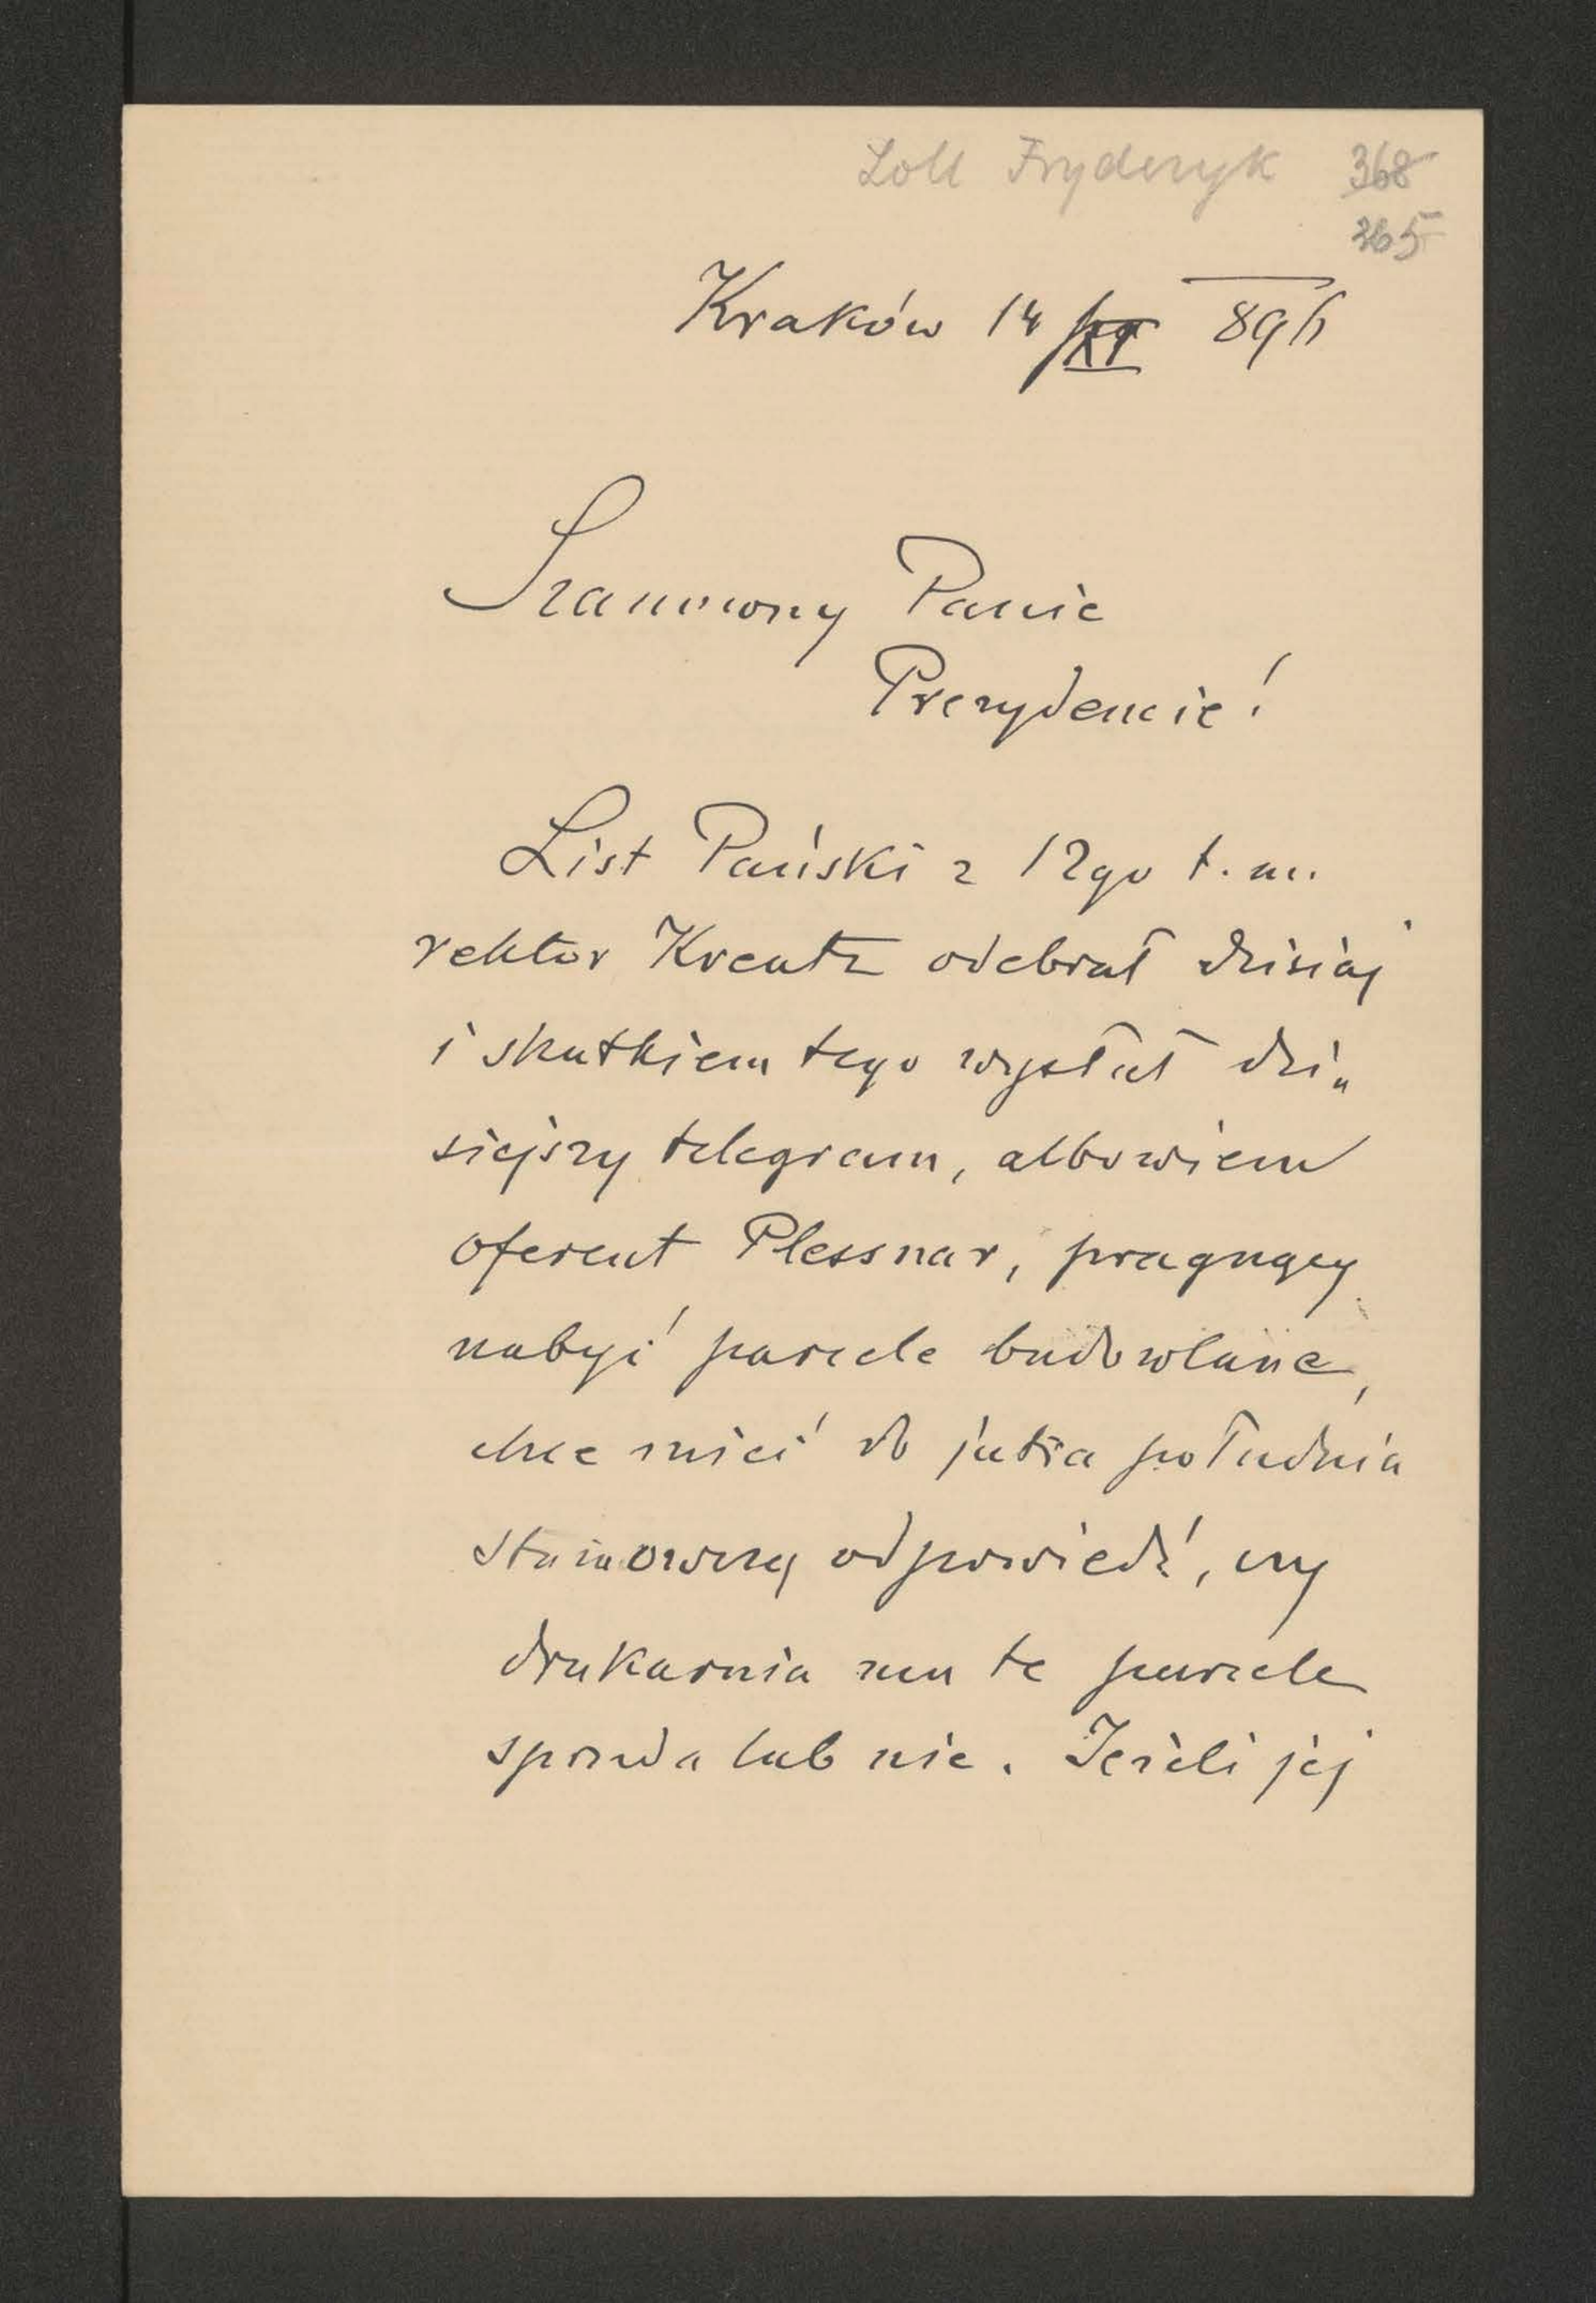 Zoll Fryderyk 368
365
Kraków 14 XI 89
Szanowny Panie
Prezydencie!
List Pański z 12go t. m.
rektor Kreutz odebrał dzisiaj
i skutkiem tego wysłał dzi„
siejszy telegram, albowiem
oferent Plessnar, pragnący
nabyć parcele budowlane,
chce mieć do jutra południa
stanowczą odpowiedź, czy
drukarnia mu te parcele
sprzeda lub nie. Jeżeli jej